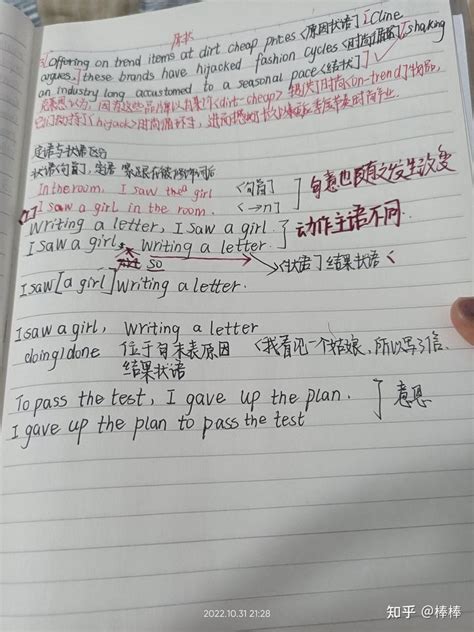 原状
Offering on trend items at dirt cheap prices <原因状语> [Cline
argues,] these brands have hijacked fashion cycles <时尚周期> [shaking
an industry long accustomed to a seasonal pace <结状>]
克莱恩认为，因为这些品牌以<dirt-cheap>提供了时尚<on-trend>物品，
它们劫持了<hijack>时尚循环，进而
定语与状语区分
状语<句首>，定语
In the room, I saw the girl <句首> ] 句意也随有之发生改变
I saw a girl in the room. <→n>
Writing a letter, I saw a girl. ] 动作主语不同
I saw a girl, writing a letter.
so <状语> 结果状语
I saw [a girl] writing a letter.
I saw a girl, writing a letter
doing/done 位于句末表原因 <我看见一个姑娘，所以写了信
结果状语
To pass the test, I gave up the plan. ] 意思
I gave up the plan to pass the test
2022.10.31 21:28
知乎 @棒棒